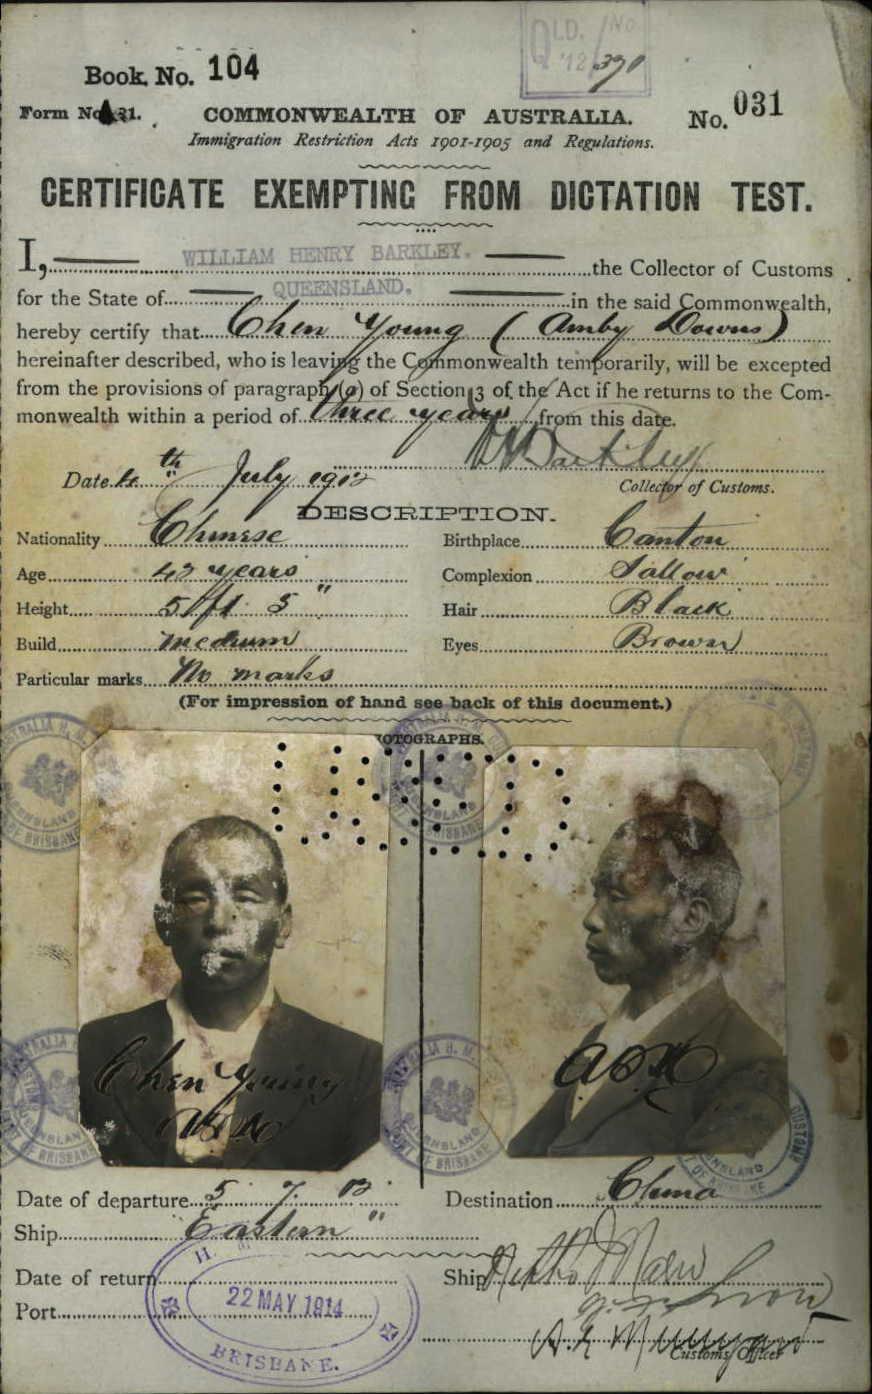 QLD. No
'12 390
Book. No. 104
Form No. 21.
COMMONWEALTH OF AUSTRALIA.
No. 031
Immigration Restriction Acts 1901-1905 and Regulations.
CERTIFICATE EXEMPTING FROM DICTATION TEST.
I, WILLIAM HENRY BARKLEY. the Collector of Customs
for the State of QUEENSLAND. in the said Commonwealth,
hereby certify that Chen Young (Amby Downs)
hereinafter described, who is leaving the Commonwealth temporarily, will be excepted
from the provisions of paragraph (a) of Section 3 of the Act if he returns to the Com-
monwealth within a period of three years from this date.
W H Barkley
Date 4th July 1912
Collector of Customs.
DESCRIPTION.
Nationality Chinese
Birthplace Canton
Age 42 years
Complexion Sallow
Height 5 ft 5 "
Hair Black
Build medium
Eyes Brown
Particular marks No marks
(For impression of hand see back of this document.)
OTOGRAPHS.
Chen Young
Date of departure 5 7 12
Destination China
Ship Eastern "
Date of return
Ship
Port
22 MAY 1914
BRISBANE.
Customs Officer